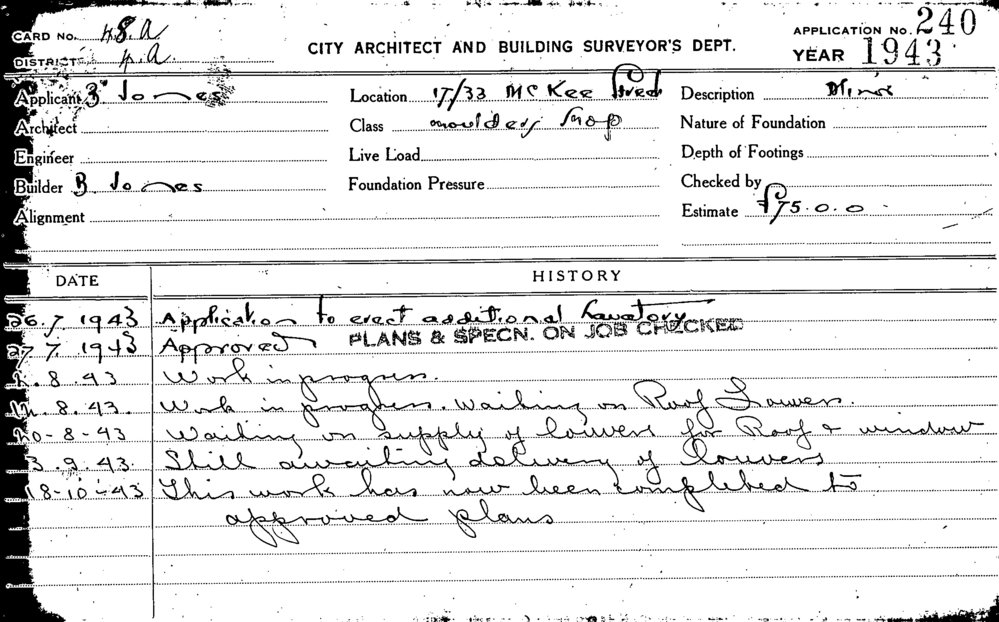 CARD No. 48.A
APPLICATION No. 240
DISTRICT 4.A
CITY ARCHITECT AND BUILDING SURVEYOR'S DEPT.
YEAR 1943
Applicant B Jones Location 17/33 McKee Street Description Minor
Architect Class moulders shop Nature of Foundation
Engineer Live Load Depth of Footings
Builder B Jones Foundation Pressure Checked by
Alignment Estimate £75.0.0
DATE HISTORY
26.7.1943 Application to erect additional Lavatory
PLANS & SPECN. ON JOB CHECKED
27.7.1943 Approved
.8.43 Work in progress.
.8.43. Work in progress. Waiting on Roof Louvers.
20-8-43 Waiting on supply of louvers for Roof & window
3.9.43 Still awaiting delivery of louvers
18-10-43 This work has now been completed to
approved plans